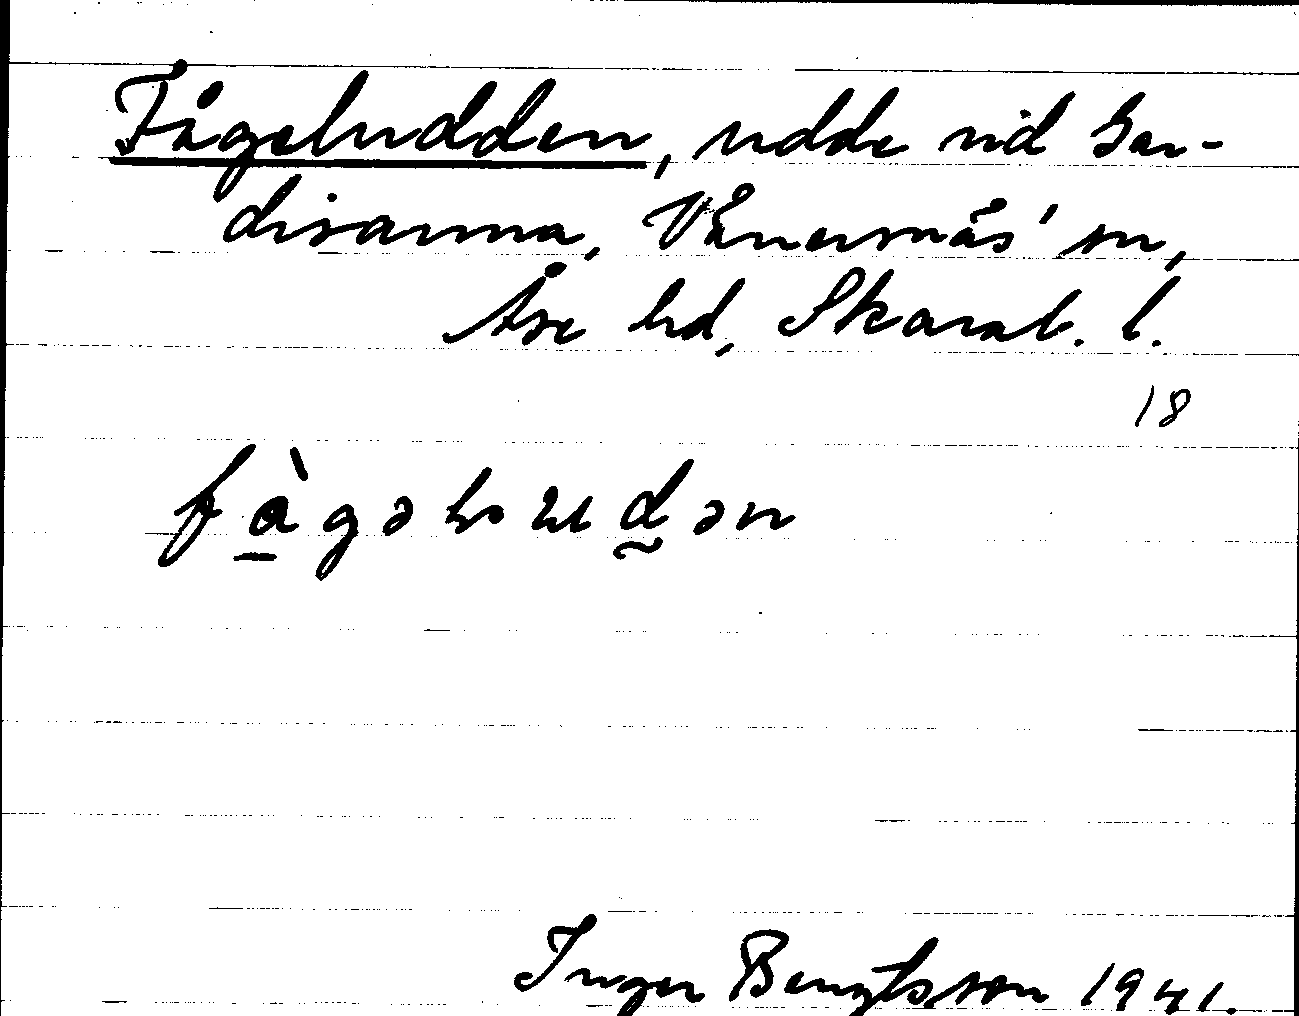 Fågeludden, udde vid Gar-
disanna, Vänersnäs' sn,
Åse hd, Skarab. l.
18
Inger Bengtsson 1941.